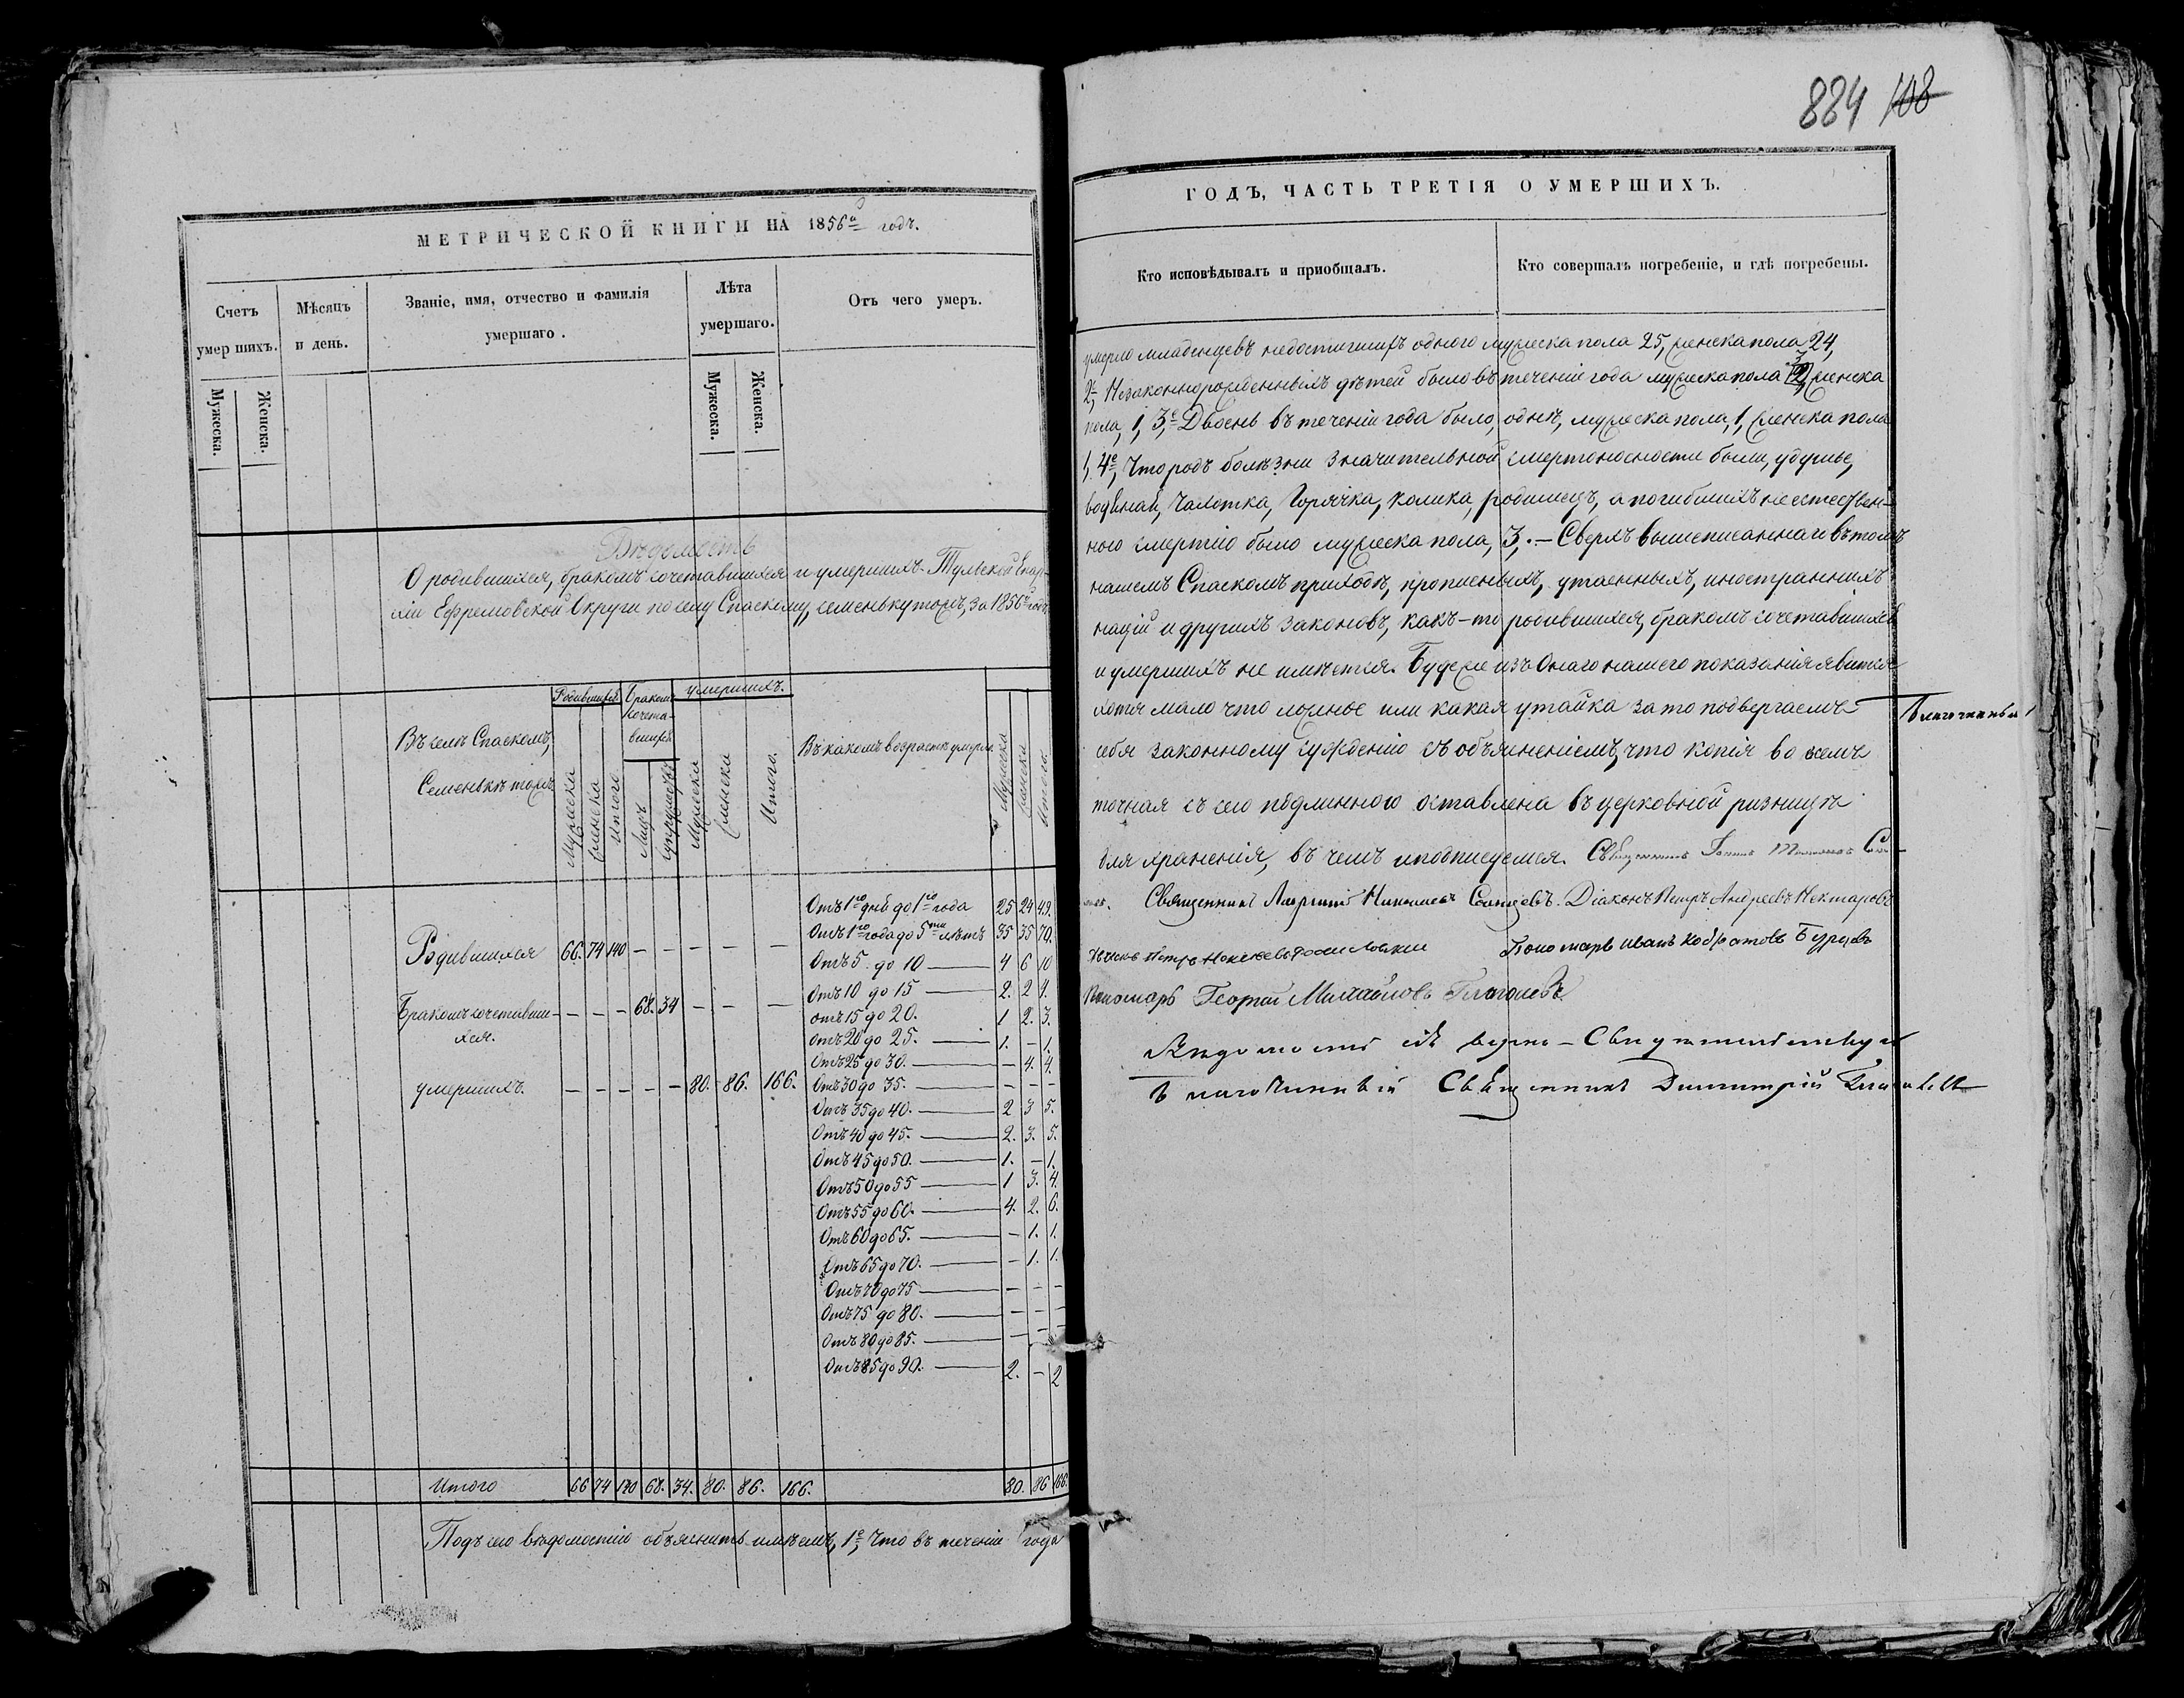 МЕТРИЧЕСКОЙ КНИГИ НА 1856й годъ.
Счетъ умер шихъ.
Мѣсяцъ и день.
Званіе, имя, отчество и фамилія умершаго.
Лѣта умершаго.
Отъ чего умеръ.
Мужеска.
Женска.
Мужеска.
Женска.
Вѣдомость
О родившихся, бракомъ сочетавшихся и умершихъ Тульской Епар-
хіи Ефремовской Округи по селу Спаскому, семенькутожъ, за 1856й годъ
Въ селѣ Спаскомъ, Семенькѣ тожъ
Родившихся
Бракомъ сочета-вшихся
умершихъ.
Въ какомъ возрастѣ умерли
Мужеска
женска
Итого
Лицъ
супружествъ
Мужеска
женска
Итого.
Мужеска
женска
Итого.
Родившихся 66. 74 140 — — — — —
Бракомъ сочетавши-хся. — — — 68. 34 — — —
умершихъ. — — — — — 80. 86. 166.
Отъ 1го дня до 1го года 25 24 49.
Отъ 1го года до 5ти лѣтъ 35 35 70.
Отъ 5 до 10 — 4 6 10
Отъ 10 до 15 — 2. 2 4.
отъ 15 до 20. 1 2. 3.
Отъ 20 до 25. — 1. — 1.
Отъ 25 до 30. — — 4. 4.
Отъ 30 до 35. — — — —
Отъ 35 до 40. — 2 3 5.
Отъ 40 до 45. — 2. 3. 5.
Отъ 45 до 50. — 1. — 1.
Отъ 50 до 55 — 1 3. 4.
Отъ 55 до 60. — 4. 2. 6.
Отъ 60 до 65. — — 1. 1.
Отъ 65 до 70. — — 1. 1.
Отъ 70 до 75 — — — —
Отъ 75 до 80. — — — —
Отъ 80 до 85. — — — —
Отъ 85 до 90. — 2. — 2
Итого 66 74 140 68. 34. 80. 86. 166. 80. 86 166.
Подъ сею вѣдомостію объяснить имѣемъ, 1е, Что въ теченіи года
884 108
ГОДЪ, ЧАСТЬ ТРЕТІЯ О УМЕРШИХЪ.
Кто исповѣдывалъ и приобщалъ.
Кто совершалъ погребеніе, и гдѣ погребены.
умерло младенцевъ недостигшихъ одного мужеска пола 25, женска пола 24,
2е, Незаконнорожденныхъ дѣтей было въ теченіи года мужеска пола 3, женска
пола, 1, 3,е Двоень въ теченіи года было, однѣ, мужеска пола, 1, женска пола
1, 4е, Что родъ болѣзни значительной смертоносности были, удушье,
водяная, Чахотка, Горячка, колика, родимецъ, а погибшихъ неестествен-
ною смертію было мужеска пола, 3,.— Сверхъ вышеписаннаго въ томъ
нашемъ Спаскомъ приходѣ, прописныхъ, утаенныхъ, иностранныхъ
націй и другихъ законовъ, какъ-то родившихся, бракомъ сочетавшихся
и умершихъ не имѣется. Будеже изъ Онаго нашего показанія явится
хотя мало что ложное или какая утайка за то подвергаемъ
Благочинный
себя законному сужденію съ объясненіемъ, что копія во всемъ
точная съ сею подлинною оставлена въ церковной ризницѣ
для храненія, въ чемъ и подписуемся. Священникъ Іоаннъ
Священникъ Николаевъ Солнцевъ. Діаконъ Петръ Андреевъ Нектаровъ
Петръ
Пономарь иванъ Бурцевъ
Пономарь Георгій Михайловъ Глаголевъ
Вѣдомость сія верна — Свидѣтельствую
Благочинный Священникъ Димитрій